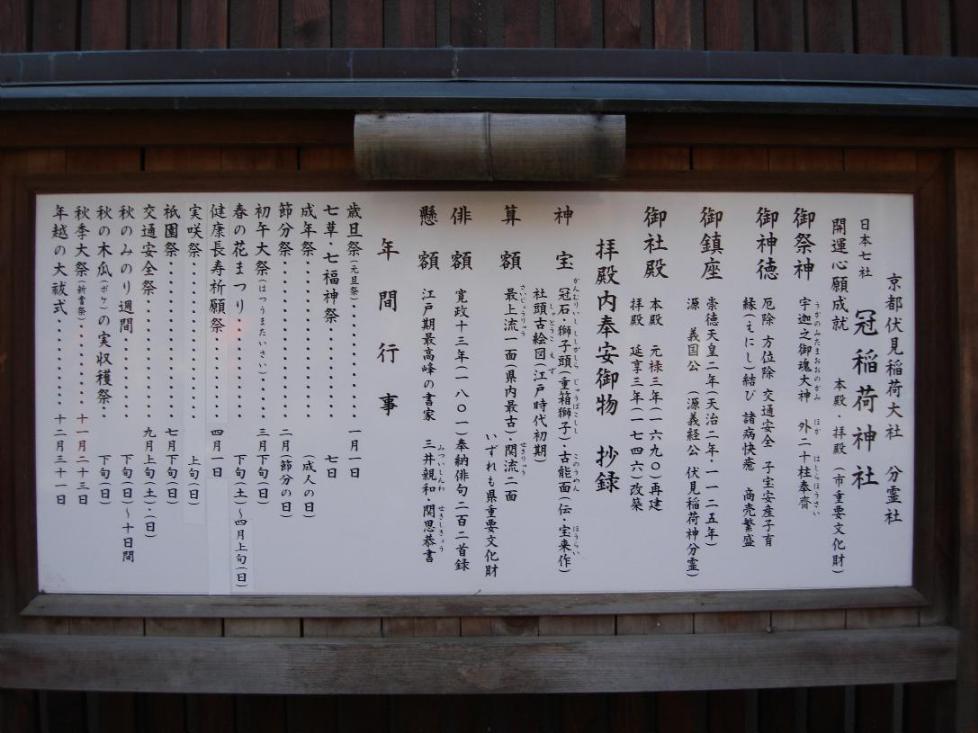 京都伏見稲荷大社 分霊社
日本七社 冠稲荷神社
開運心願成就 本殿 拝殿(市重要文化財)
御祭神 宇迦之御魂大神 外二十柱奉齋
うがのみたまおおのかみ ほか はしらほうさい
御神徳 厄除 方位除 交通安全 子宝安産子育
縁(えにし)結び 諸病快癒 商売繁盛
御鎮座 崇徳天皇二年(天治二年・一一二五年)
源 義国公 (源義経公 伏見稲荷神分霊)
御社殿 本殿 元禄三年(一六九〇)再建
拝殿 延享三年(一七四六)改築
拝殿内奉安御物 抄録
神宝 冠石・獅子頭(重箱獅子)・古能面(伝・宝来作)
かんむりいし ししがしら じゅうばこしし このうめん ほうらい
社頭古絵図(江戸時代初期)
しゃとうこえず
算額 最上流一面(県内最古)・関流二面
さいじょうりゅう せきりゅう
いずれも県重要文化財
俳額 寛政十三年(一八〇一)奉納俳句二百二首録
懸額 江戸期最高峰の書家 三井親和・関思恭書
みついしんわ せきしきょう
年間行事
歳旦祭(元旦祭)・・・・・・・・ 一月一日
七草・七福神祭 七日
成年祭・・・・・・・・・・ (成人の日)
節分祭・・・・・・・・・・ 二月(節分の日)
初午大祭(はつうまたいさい)・・・・ 三月下旬(日)
春の花まつり・・・・・・・ 下旬(土)～四月上旬(日)
健康長寿祈願祭・・・・・・ 四月(日)
実咲祭・・・・・・・・・・ 上旬(日)
祇園祭・・・・・・・・・・ 七月下旬(日)
交通安全祭・・・・・・・・ 九月上旬(土)・(日)
秋のみのり週間・・・・・・ 下旬(日)～十日間
秋の木瓜(ボケ)の実収穫祭・・ 下旬(日)
秋季大祭(新嘗祭)・・・・・・ 十一月二十三日
年越の大祓式・・・・・・・ 十二月三十一日